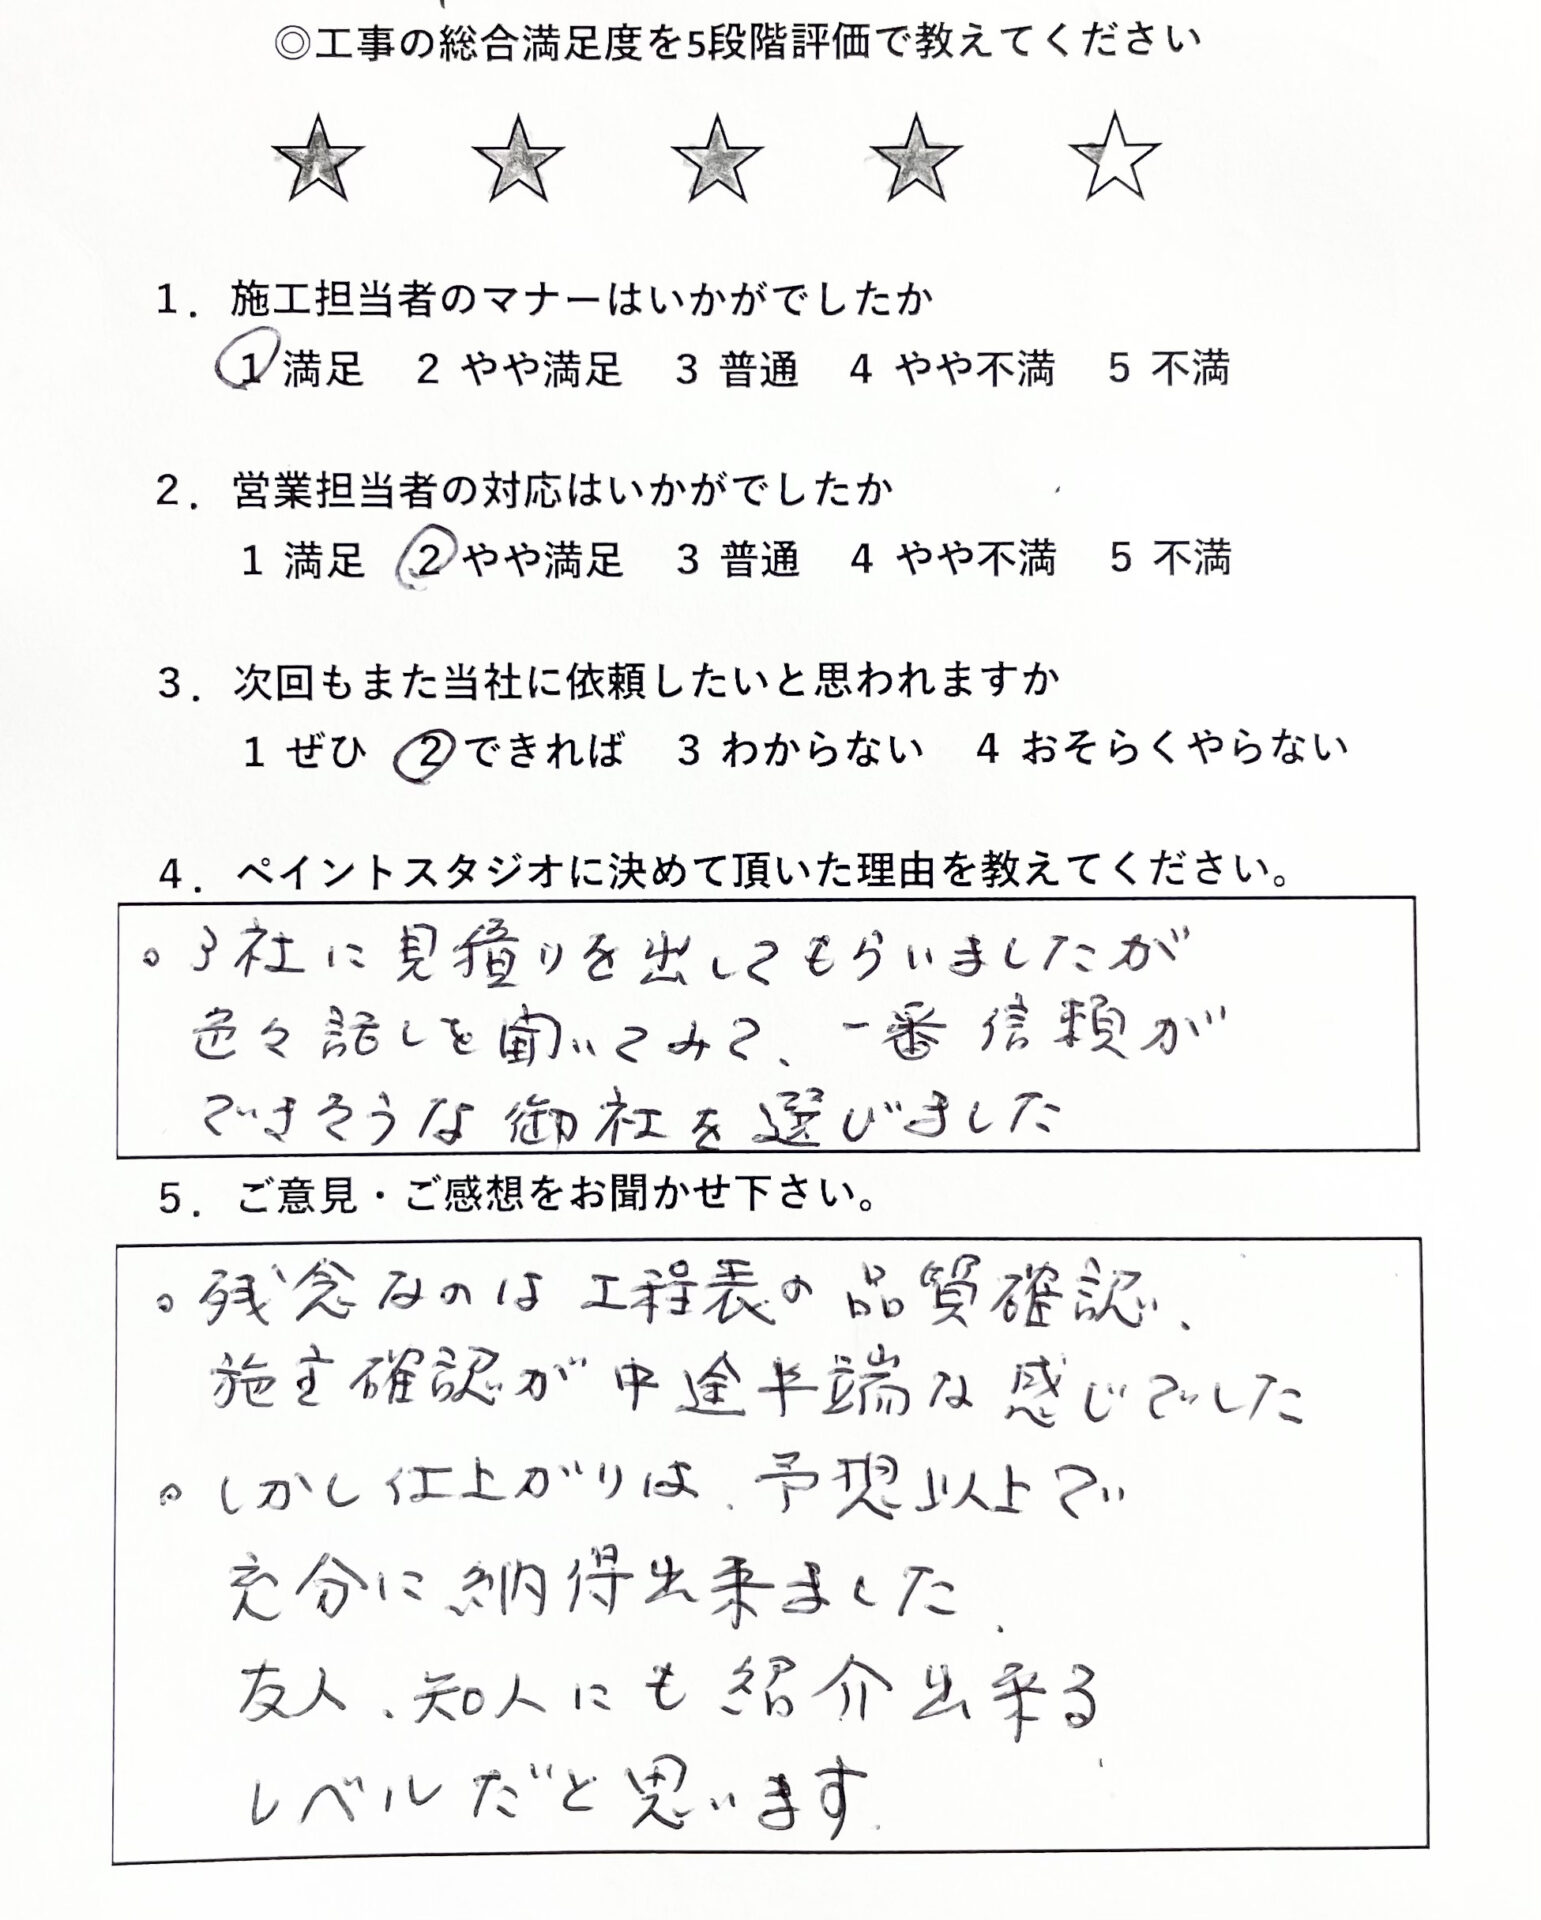 ◎工事の総合満足度を5段階評価で教えてください
1．施工担当者のマナーはいかがでしたか
1 満足 2 やや満足 3 普通 4 やや不満 5 不満
2．営業担当者の対応はいかがでしたか
1 満足 2 やや満足 3 普通 4 やや不満 5 不満
3．次回もまた当社に依頼したいと思われますか
1 ぜひ 2 できれば 3 わからない 4 おそらくやらない
4．ペイントスタジオに決めて頂いた理由を教えてください。
。3社に見積りを出してもらいましたが
色々話しを聞いてみて、一番信頼が
できそうな御社を選びました
5．ご意見・ご感想をお聞かせ下さい。
。残念なのは工程表の品質確認、
施主確認が中途半端な感じでした
。しかし仕上がりは、予想以上で
充分に納得出来ました、
友人、知人にも紹介出来る
レベルだと思います。